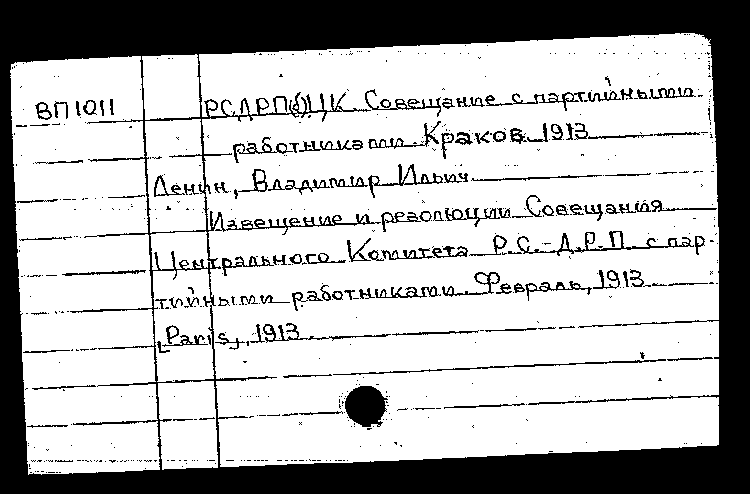 ВП 1011 РСДРП(б)ЦК. Совещание с партийными
работниками. Краков. 1913
Ленин, Владимир Ильич.
Извещение и резолюции Совещания
Центрального Комитета Р.С.-Д.Р.П. с пар-
тийными работниками. Февраль, 1913.
[Paris], 1913.